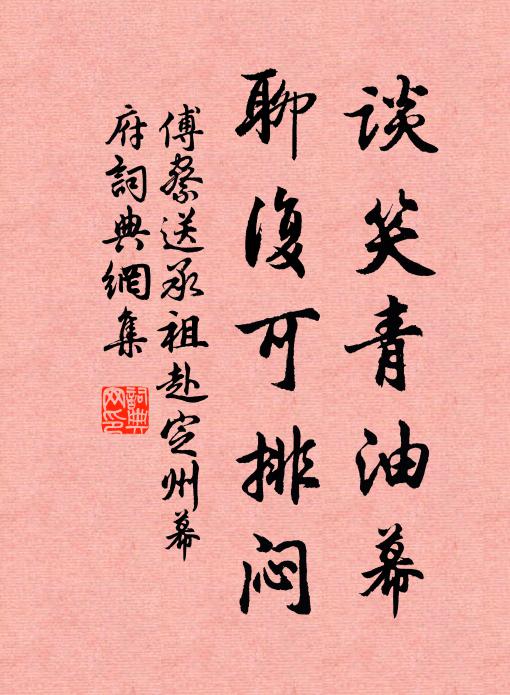 谈笑青油幕
聊复可排闷
傅察送承祖赴定州幕
府詞典網集
詞典
网印